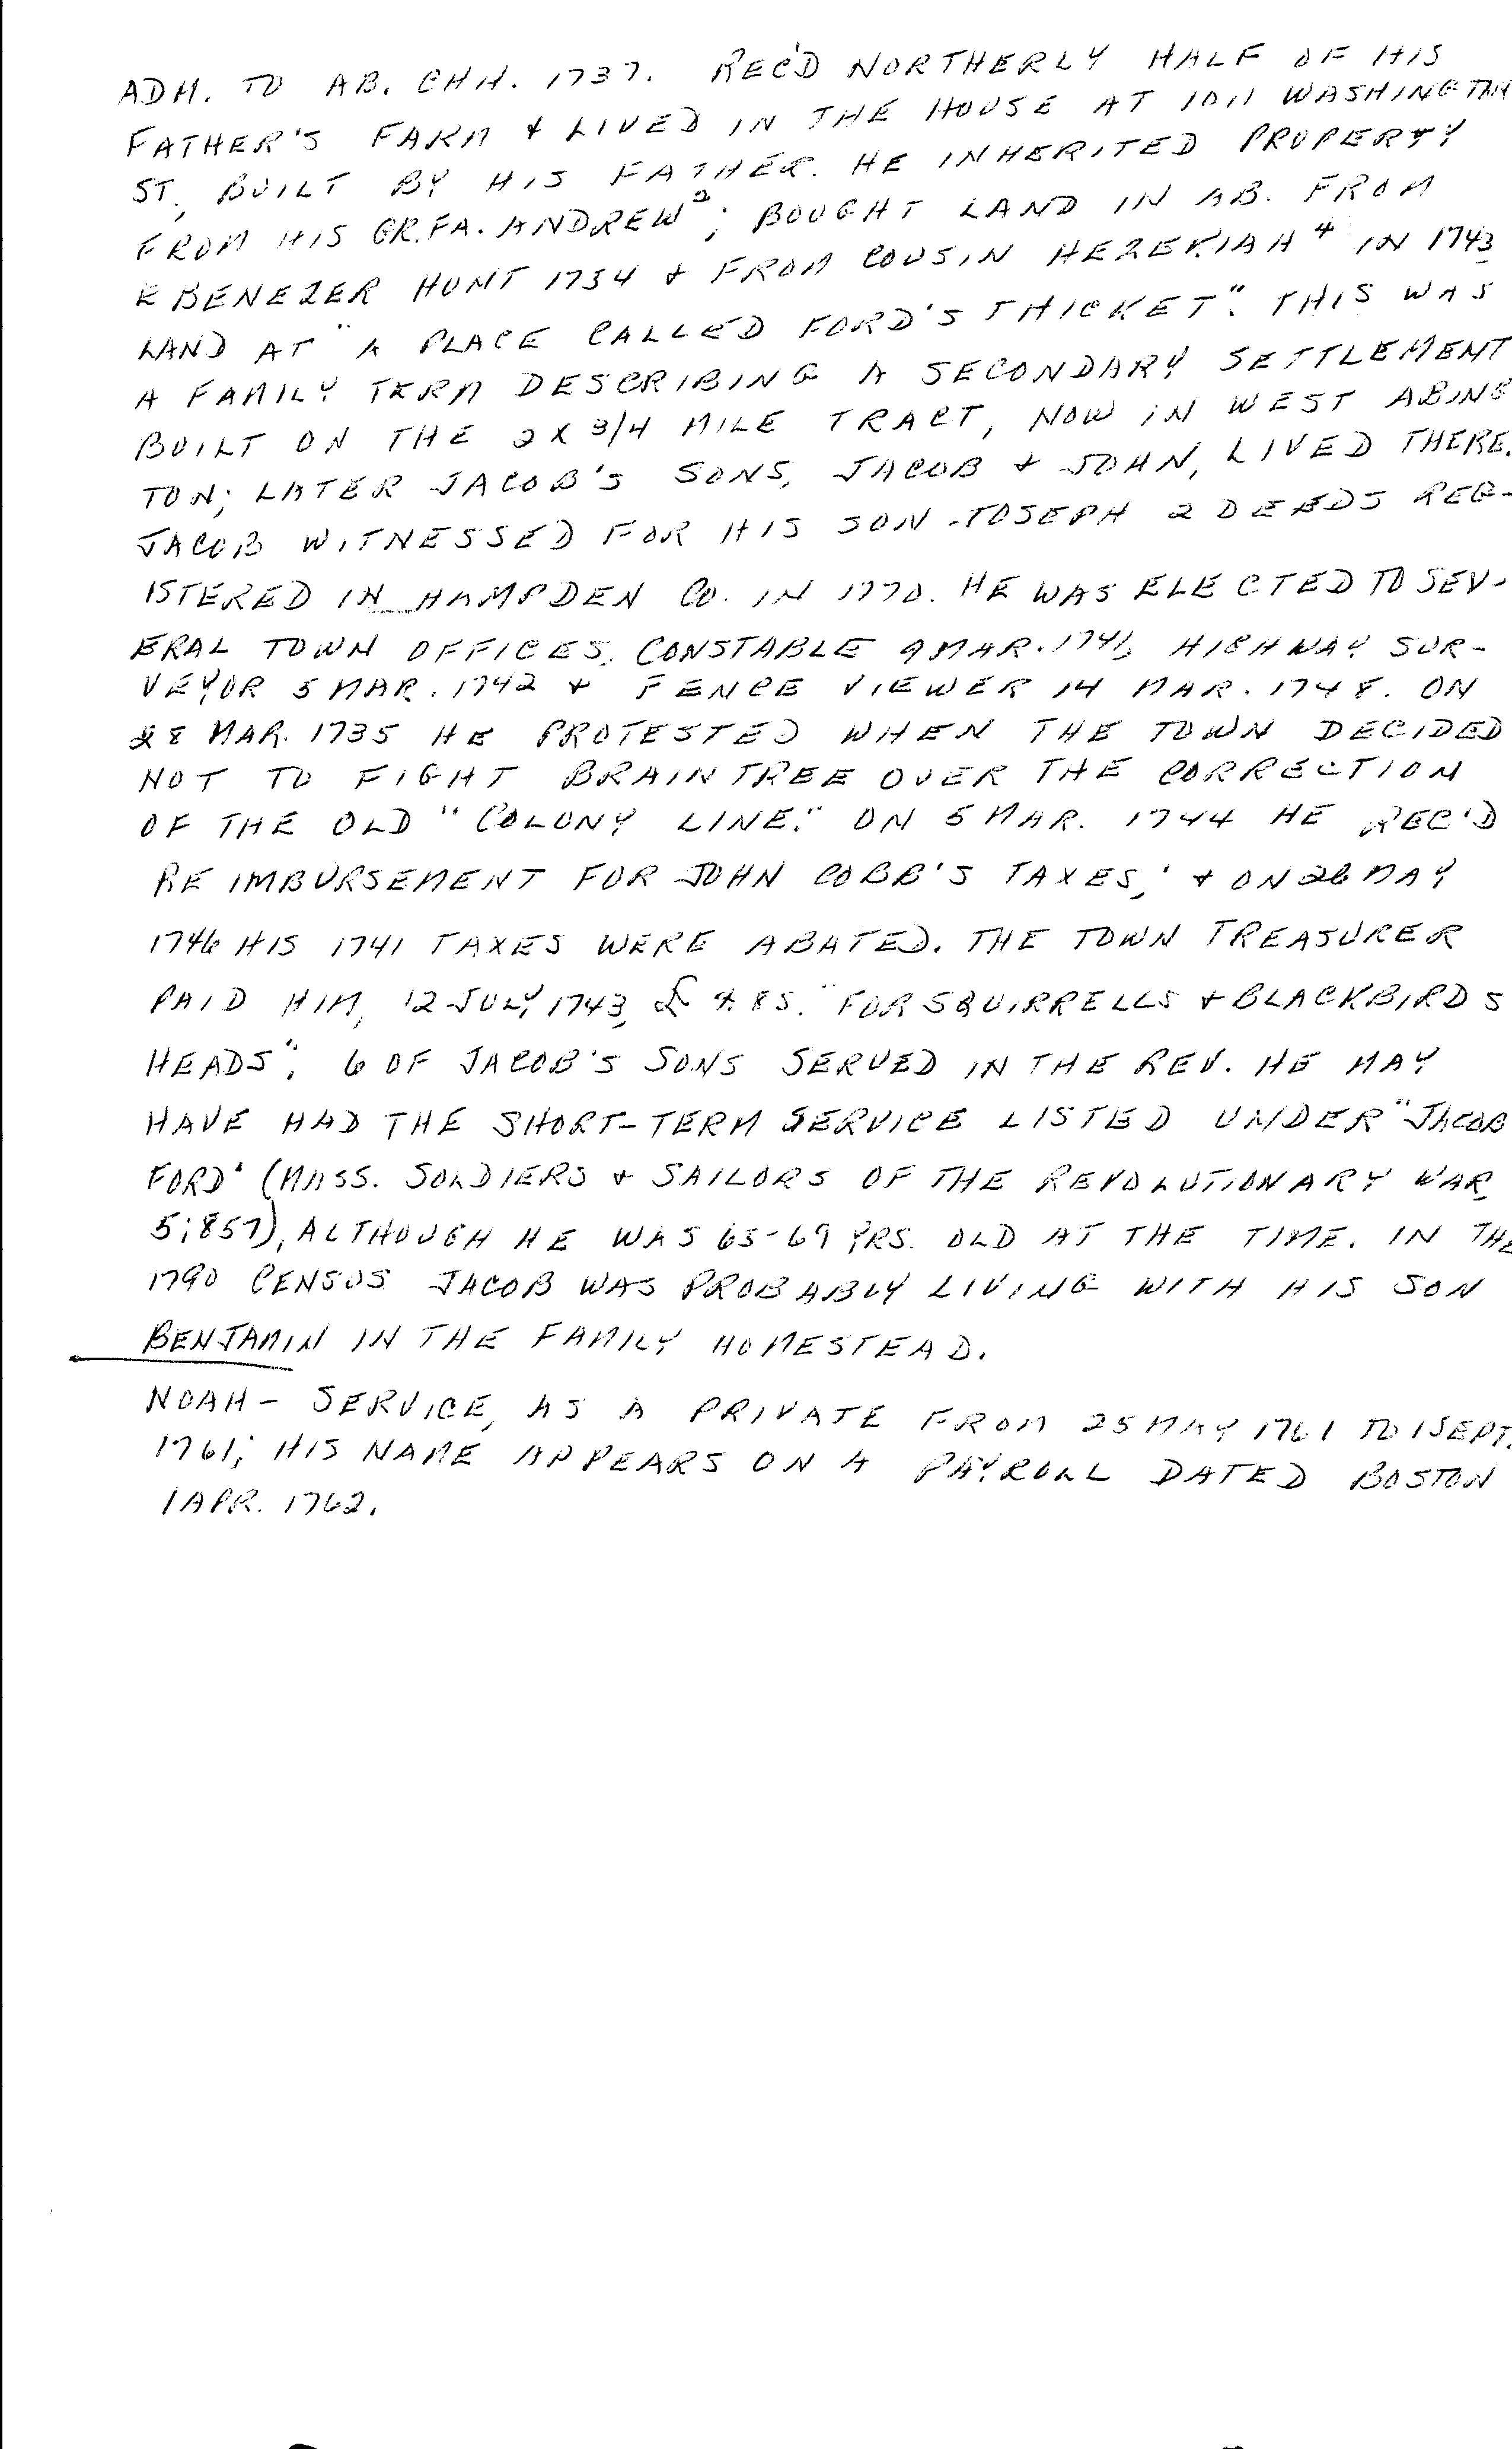 ADM. TO AB. CHH. 1737. REC'D NORTHERLY HALF OF HIS
FATHER'S FARM & LIVED IN THE HOUSE AT 1011 WASHINGTON
ST., BUILT BY HIS FATHER. HE INHERITED PROPERTY
FROM HIS GR.FA. ANDREW²; BOUGHT LAND IN AB. FROM
EBENEZER HUNT 1734 & FROM COUSIN HEZEKIAH⁴ IN 1743
LAND AT "A PLACE CALLED FORD'S THICKET". THIS WAS
A FAMILY TERM DESCRIBING A SECONDARY SETTLEMENT
BUILT ON THE 2 X 3/4 MILE TRACT, NOW IN WEST ABING
TON; LATER JACOB'S SONS, JACOB & JOHN, LIVED THERE.
JACOB WITNESSED FOR HIS SON JOSEPH 2 DEEDS REG-
ISTERED IN HAMPDEN CO. IN 1770. HE WAS ELECTED TO SEV-
ERAL TOWN OFFICES, CONSTABLE 9 MAR. 1741, HIGHWAY SUR-
VEYOR 5 MAR. 1742 & FENCE VIEWER 14 MAR. 1748. ON
28 MAR. 1735 HE PROTESTED WHEN THE TOWN DECIDED
NOT TO FIGHT BRAINTREE OVER THE CORRECTION
OF THE OLD "COLONY LINE." ON 5 MAR. 1744 HE REC'D
REIMBURSEMENT FOR JOHN COBB'S TAXES; & ON 26 MAY
1746 HIS 1741 TAXES WERE ABATED. THE TOWN TREASURER
PAID HIM, 12 JULY 1743, £ 4.8S. "FOR SQUIRRELLS & BLACKBIRDS
HEADS"; 6 OF JACOB'S SONS SERVED IN THE REV. HE MAY
HAVE HAD THE SHORT-TERM SERVICE LISTED UNDER "JACOB
FORD" (MASS. SOLDIERS & SAILORS OF THE REVOLUTIONARY WAR,
5:857), ALTHOUGH HE WAS 65-69 YRS. OLD AT THE TIME. IN THE
1790 CENSUS JACOB WAS PROBABLY LIVING WITH HIS SON
BENJAMIN IN THE FAMILY HOMESTEAD.
NOAH - SERVICE, AS A PRIVATE FROM 25 MAY 1761 TO 1 SEPT.
1761; HIS NAME APPEARS ON A PAYROLL DATED BOSTON
1 APR. 1762.